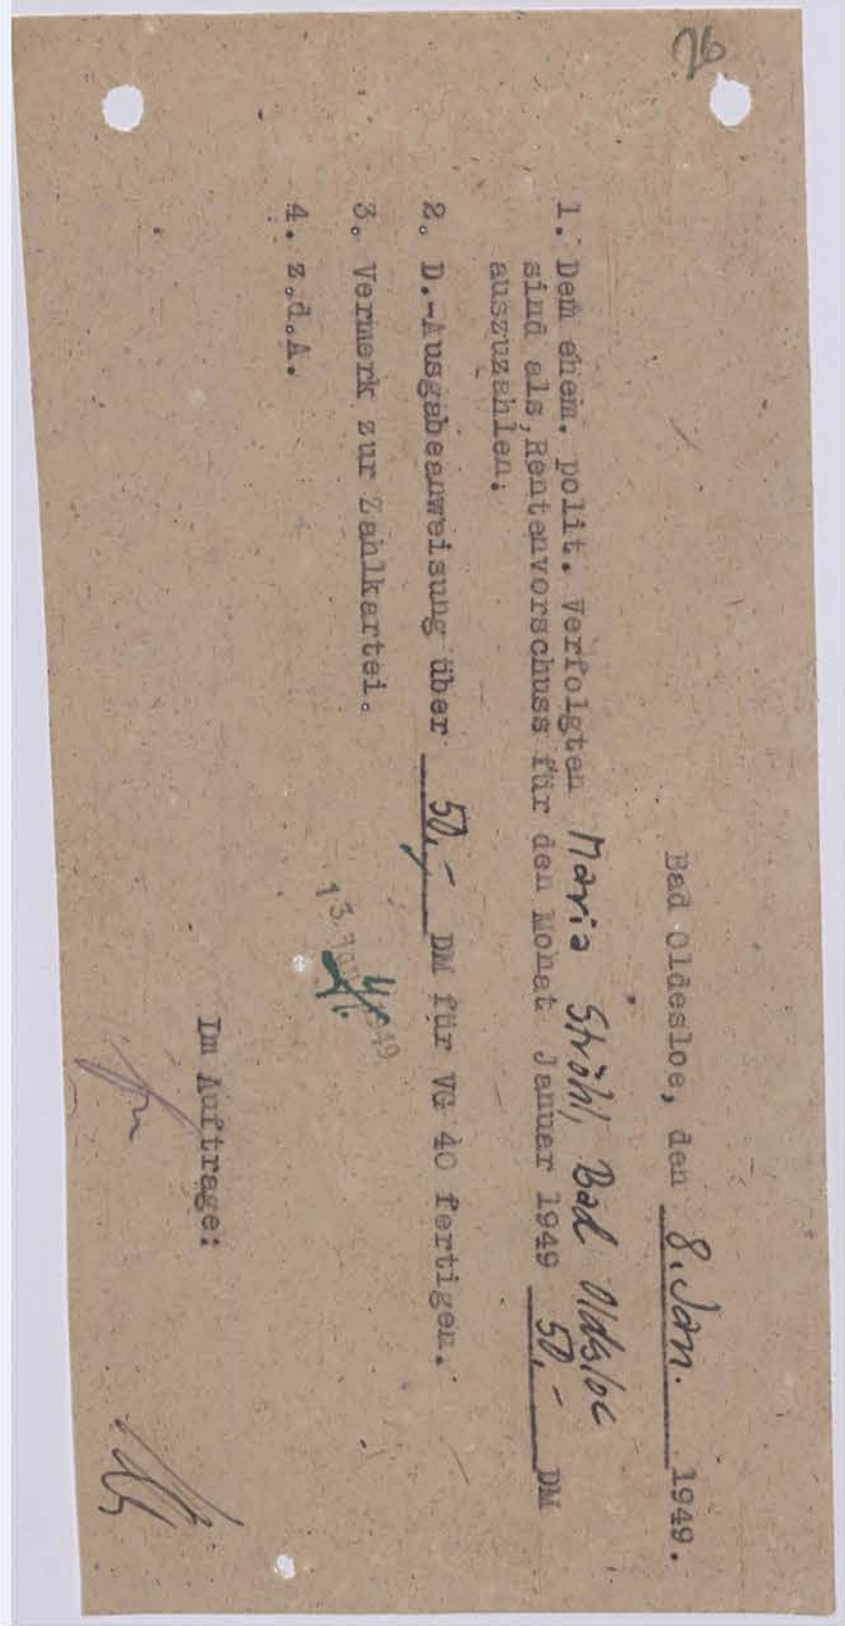 26
Bad Oldesloe, den 8. Jan. 1949.
1. Dem ehem. polit. Verfolgten Maria Ströhl, Bad Oldesloe
sind als Rentenvorschuss für den Monat Januar 1949 50,- DM
auszuzahlen.
2. D.-Ausgabeanweisung über 50,- DM für VG 40 fertigen.
3. Vermerk zur Zahlkartei.
13. Jan. 1949
4. z.d.A.
Im Auftrage: